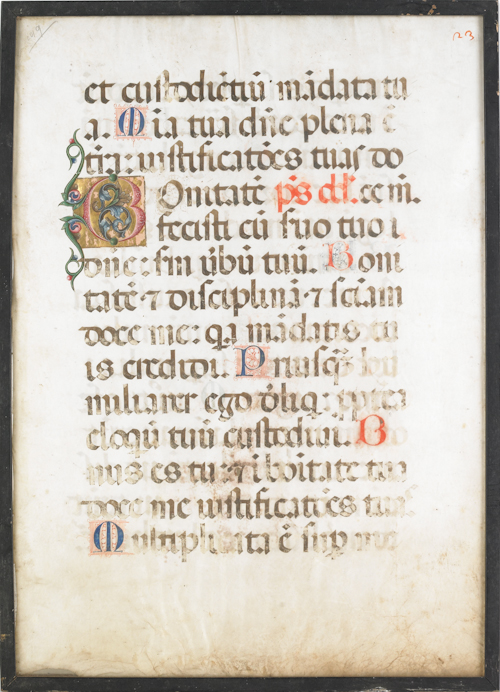 23
et custodiētiū mādata tu
a. Mia tua dn̄e plena ē
tr̄a: iustificatōes tuas do
Bonitatē p̄s cl̄. ce m̄.
fecisti cū suo tuo
dn̄e: sm̄ ūbū tuū. Boni
tatē ⁊ disciplinā ⁊ sciam
doce me: qa mādatis tu
is credidi. Priusq̄
miliarer ego
eloqū tuū custodiui. B
nus es tu: ⁊ ī boītate tua
doce me iustificatōes tuas
Multiplicata ē sup me